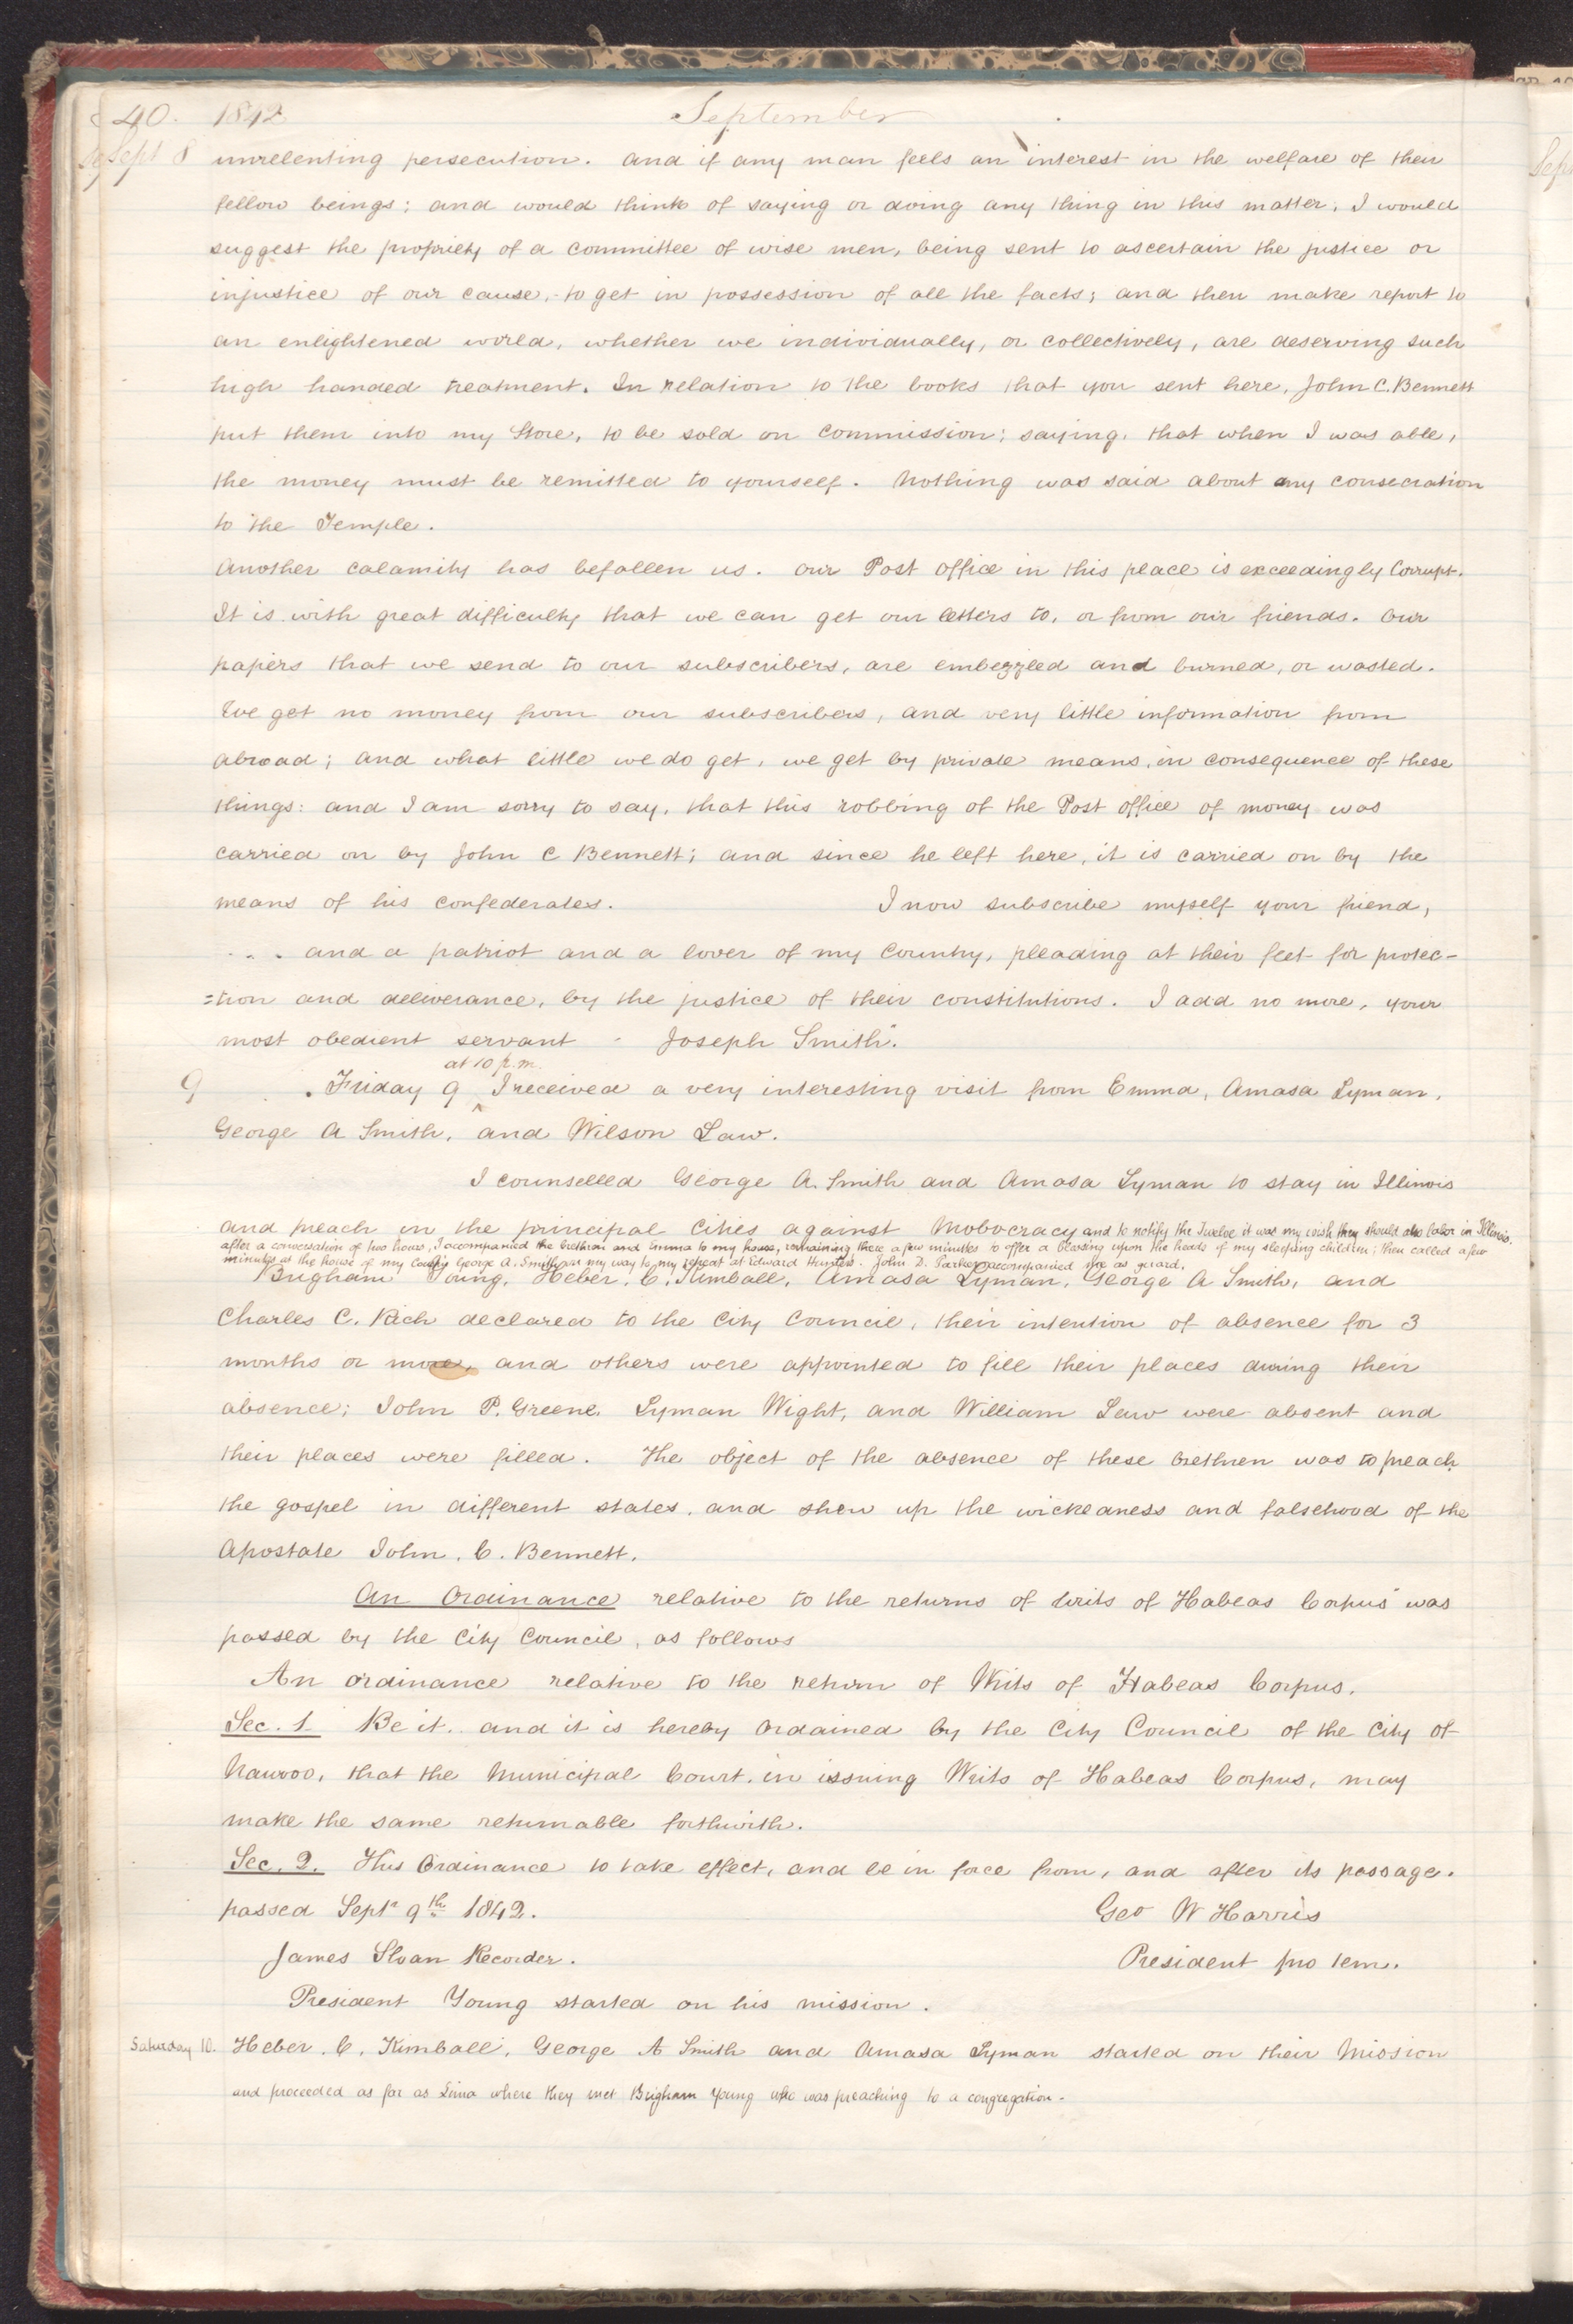 40. 1842 September
Sept 8 unrelenting persecution. and if any man feels an interest in the welfare of their
fellow beings; and would think of saying or doing any thing in this matter, I would
suggest the propriety of a committee of wise men, being sent to ascertain the justice or
injustice of our cause, to get in possession of all the facts; and then make report to
an enlightened world, whether we individually, or collectively, are deserving such
high handed treatment. In relation to the books that you sent here, John C. Bennett
put them into my Store, to be sold on commission; saying, that when I was able,
the money must be remitted to yourself. Nothing was said about any consecration
to the Temple.
Another calamity has befallen us. our Post office in this place is exceedingly Corrupt.
It is with great difficulty that we can get our letters to, or from our friends. Our
papers that we send to our subscribers, are embezzled and burned, or wasted.
We get no money from our subscribers, and very little information from
abroad; and what little we do get, we get by private means, in consequence of these
things: and I am sorry to say, that this robbing of the Post office of money was
carried on by John C Bennett; and since he left here, it is carried on by the
means of his confederates. I now subscribe myself your friend,
and a patriot and a lover of my Country, pleading at their feet for protec-
=tion and deliverance, by the justice of their constitutions. I add no more, your
most obedient servant Joseph Smith."
at 10 p.m.
9 Friday 9 ^ I received a very interesting visit from Emma, Amasa Lyman,
George A Smith, and Wilson Law.
I counselled George A. Smith and Amasa Lyman to stay in Illinois
and preach in the principal Cities against Mobocracy and to notify the Twelve it was my wish they should also labor in Illinois.
after a conversation of two hours, I accompanied the brethren and Emma to my house, remaining there a few minutes to offer a blessing upon the heads of my sleeping children; then called a few
minutes at the house of my Cousin George A. Smith on my way to my retreat at Edward Hunters. John D. Parker accompanied me as guard.
Brigham Young, Heber. C. Kimball, Amasa Lyman, George A Smith, and
Charles C. Rich declared to the City Council, their intention of absence for 3
months or more, and others were appointed to fill their places during their
absence; John P. Greene, Lyman Wight, and William Law were absent and
their places were filled. The object of the absence of these brethren was to preach
the gospel in different states, and shew up the wickedness and falsehood of the
apostate John. C. Bennett.
An Ordinance relative to the returns of writs of Habeas Corpus was
passed by the City Council, as follows
An ordinance relative to the return of Writs of Habeas Corpus.
Sec. 1 Be it. and it is hereby Ordained by the City Council of the City of
Nauvoo, that the Municipal Court. in issuing Writs of Habeas Corpus, may
make the same returnable forthwith.
Sec. 2. This Ordinance to take effect, and be in force from, and after its passage.
passed Sept. 9th 1842. Geo W Harris
James Sloan Recorder. President pro tem.
President Young started on his mission.
Saturday 10. Heber. C. Kimball, George A Smith and Amasa Lyman started on their Mission
and proceeded as far as Lima where they met Brigham Young who was preaching to a congregation.